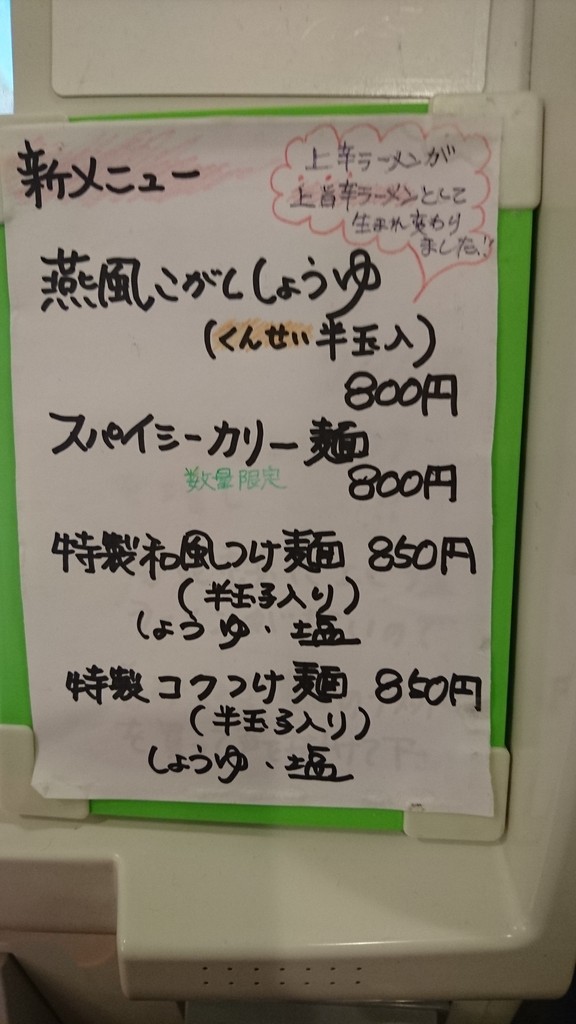 新メニュー
上辛ラーメンが
上旨辛ラーメンとして
生まれ変わり
ました!!
燕風こがししょうゆ
(くんせい半玉入)
800円
スパイシーカリー麺
数量限定
800円
特製和風つけ麺 850円
(半玉子入り)
しょうゆ・塩
特製コクつけ麺 850円
(半玉子入り)
しょうゆ・塩